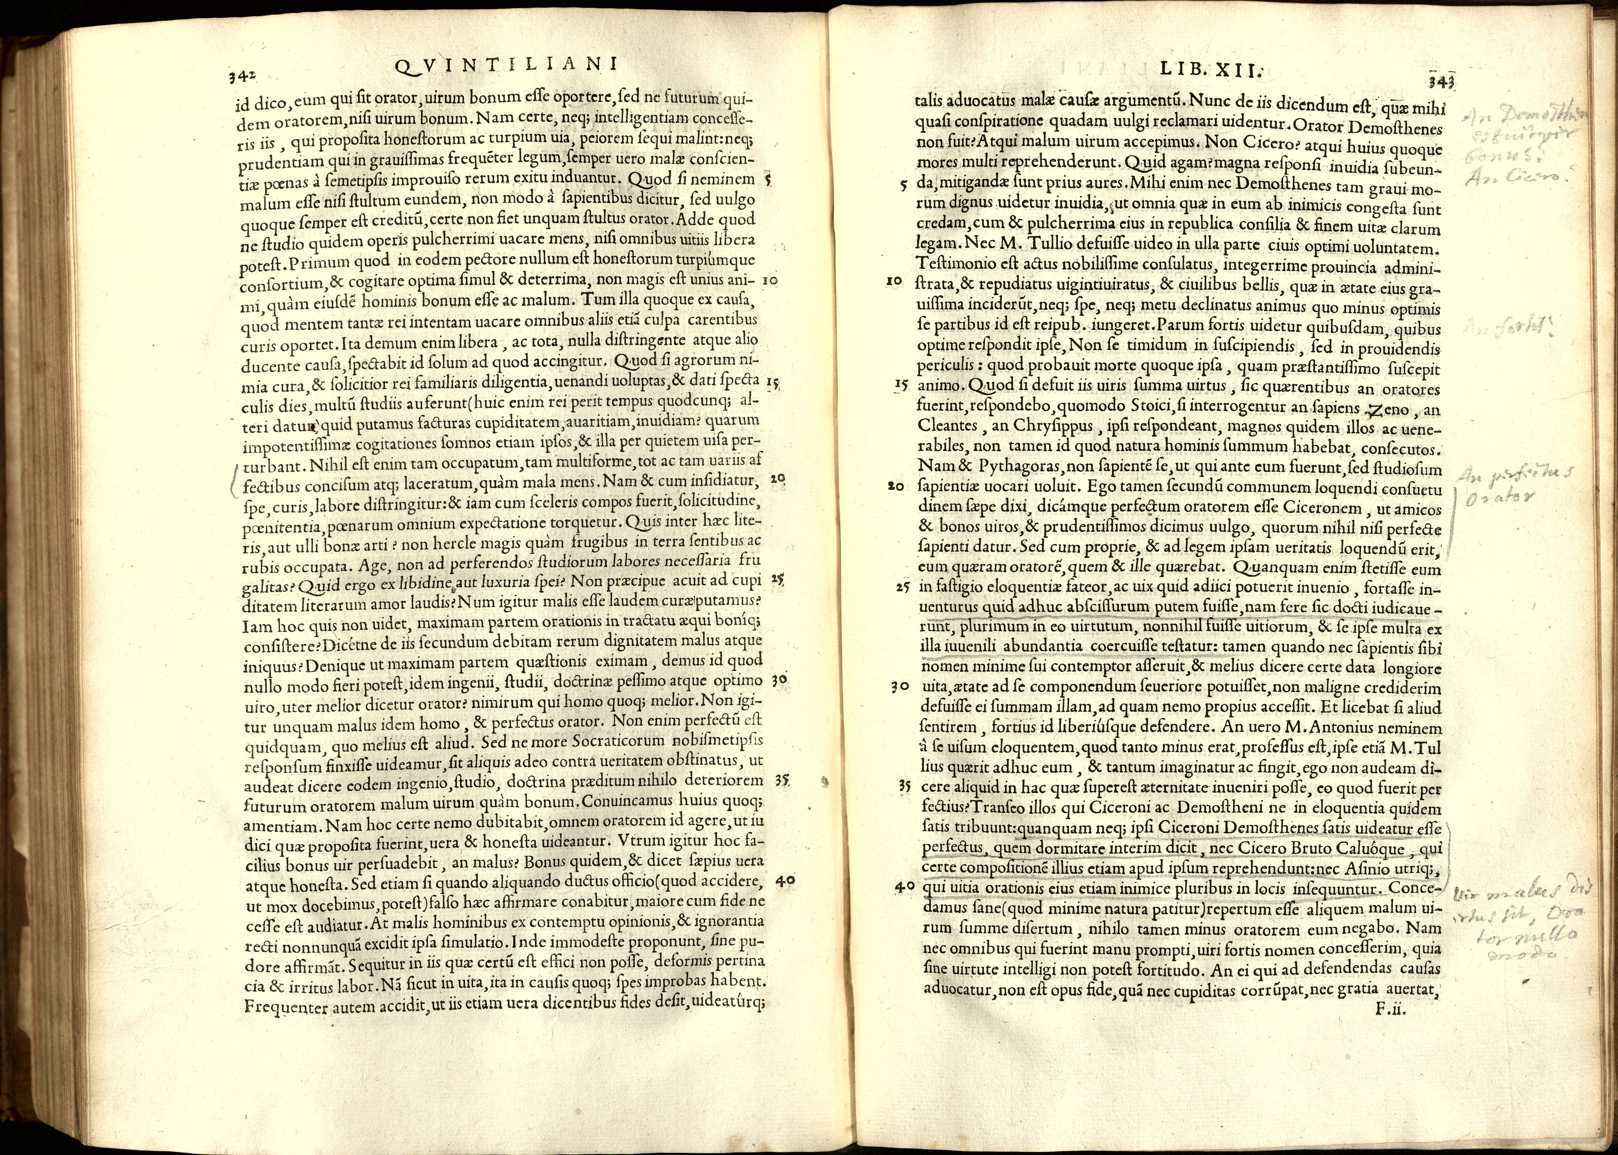 342
QVINTILIANI
id dico, eum qui sit orator, uirum bonum esse oportere, sed ne futurum qui-
dem oratorem, nisi uirum bonum. Nam certe, neq; intelligentiam concesse-
ris iis, qui proposita honestorum ac turpium uia, peiorem sequi malint: neq;
prudentiam qui in grauissimas frequẽter legum, semper uero malæ conscien-
tiæ pœnas à semetipsis improuiso rerum exitu induantur. Quod si neminem 5
malum esse nisi stultum eundem, non modo à sapientibus dicitur, sed uulgo
quoque semper est creditũ, certe non fiet unquam stultus orator. Adde quod
ne studio quidem operis pulcherrimi uacare mens, nisi omnibus uitiis libera
potest. Primum quod in eodem pectore nullum est honestorum turpiúmque
consortium, & cogitare optima simul & deterrima, non magis est unius ani- 10
mi, quàm eiusdẽ hominis bonum esse ac malum. Tum illa quoque ex causa,
quod mentem tantæ rei intentam uacare omnibus aliis etiã culpa carentibus
curis oportet. Ita demum enim libera, ac tota, nulla distringente atque alio
ducente causa, spectabit id solum ad quod accingitur. Quod si agrorum ni-
mia cura, & solicitior rei familiaris diligentia, uenandi uoluptas, & dati specta 15
culis dies, multũ studiis auferunt (huic enim rei perit tempus quodcunq; al-
teri datur) quid putamus facturas cupiditatem, auaritiam, inuidiam? quarum
impotentissimæ cogitationes somnos etiam ipsos, & illa per quietem uisa per-
turbant. Nihil est enim tam occupatum, tam multiforme, tot ac tam uariis af
fectibus concisum atq; laceratum, quàm mala mens. Nam & cum insidiatur, 20
spe, curis, labore distringitur: & iam cum sceleris compos fuerit, solicitudine,
pœnitentia, pœnarum omnium expectatione torquetur. Quis inter hæc lite-
ris, aut ulli bonæ arti? non hercle magis quàm frugibus in terra sentibus ac
rubis occupata. Age, non ad perferendos studiorum labores necessaria fru
galitas? Quid ergo ex libidine, aut luxuria spei? Non præcipue acuit ad cupi 25
ditatem literarum amor laudis? Num igitur malis esse laudem curæ putamus?
Iam hoc quis non uidet, maximam partem orationis in tractatu æqui boniq;
consistere? Dicétne de iis secundum debitam rerum dignitatem malus atque
iniquus? Denique ut maximam partem quæstionis eximam, demus id quod
nullo modo fieri potest, idem ingenii, studii, doctrinæ pessimo atque optimo 30
uiro, uter melior dicetur orator? nimirum qui homo quoq; melior. Non igi-
tur unquam malus idem homo, & perfectus orator. Non enim perfectũ est
quidquam, quo melius est aliud. Sed ne more Socraticorum nobismetipsis
responsum finxisse uideamur, sit aliquis adeo contra ueritatem obstinatus, ut
audeat dicere eodem ingenio, studio, doctrina præditum nihilo deteriorem 35
futurum oratorem malum uirum quàm bonum. Conuincamus huius quoq;
amentiam. Nam hoc certe nemo dubitabit, omnem oratorem id agere, ut iu
dici quæ proposita fuerint, uera & honesta uideantur. Vtrum igitur hoc fa-
cilius bonus uir persuadebit, an malus? Bonus quidem, & dicet sæpius uera
atque honesta. Sed etiam si quando aliquando ductus officio (quod accidere, 40
ut mox docebimus, potest) falso hæc affirmare conabitur, maiore cum fide ne
cesse est audiatur. At malis hominibus ex contemptu opinionis, & ignorantia
recti nonnunquã excidit ipsa simulatio. Inde immodeste proponunt, sine pu-
dore affirmãt. Sequitur in iis quæ certũ est effici non posse, deformis pertina
cia & irritus labor. Nã sicut in uita, ita in causis quoq; spes improbas habent.
Frequenter autem accidit, ut iis etiam uera dicentibus fides desit, uideatúrq;
LIB. XII.
343
talis aduocatus malæ causæ argumentũ. Nunc de iis dicendum est, quæ mihi
quasi conspiratione quadam uulgi reclamari uidentur. Orator Demosthenes
non fuit? Atqui malum uirum accepimus. Non Cicero? atqui huius quoque
mores multi reprehenderunt. Quid agam? magna responsi inuidia subeun-
5 da, mitigandæ sunt prius aures. Mihi enim nec Demosthenes tam graui mo-
rum dignus uidetur inuidia, ut omnia quæ in eum ab inimicis congesta sunt
credam, cum & pulcherrima eius in republica consilia & finem uitæ clarum
legam. Nec M. Tullio defuisse uideo in ulla parte ciuis optimi uoluntatem.
Testimonio est actus nobilissime consulatus, integerrime prouincia admini-
10 strata, & repudiatus uigintiuiratus, & ciuilibus bellis, quæ in ætate eius gra-
uissima inciderũt, neq; spe, neq; metu declinatus animus quo minus optimis
se partibus id est reipub. iungeret. Parum fortis uidetur quibusdam, quibus
optime respondit ipse, Non se timidum in suscipiendis, sed in prouidendis
periculis: quod probauit morte quoque ipsa, quam præstantissimo suscepit
15 animo. Quod si defuit iis uiris summa uirtus, sic quærentibus an oratores
fuerint, respondebo, quomodo Stoici, si interrogentur an sapiens Zeno, an
Cleantes, an Chrysippus, ipsi respondeant, magnos quidem illos ac uene-
rabiles, non tamen id quod natura hominis summum habebat, consecutos.
Nam & Pythagoras, non sapientẽ se, ut qui ante eum fuerunt, sed studiosum
20 sapientiæ uocari uoluit. Ego tamen secundũ communem loquendi consuetu
dinem sæpe dixi, dicámque perfectum oratorem esse Ciceronem, ut amicos
& bonos uiros, & prudentissimos dicimus uulgo, quorum nihil nisi perfecte
sapienti datur. Sed cum proprie, & ad legem ipsam ueritatis loquendũ erit,
eum quæram oratorẽ, quem & ille quærebat. Quanquam enim stetisse eum
25 in fastigio eloquentiæ fateor, ac uix quid adiici potuerit inuenio, fortasse in-
uenturus quid adhuc abscissurum putem fuisse, nam fere sic docti iudicaue-
runt, plurimum in eo uirtutum, nonnihil fuisse uitiorum, & se ipse multa ex
illa iuuenili abundantia coercuisse testatur: tamen quando nec sapientis sibi
nomen minime sui contemptor asseruit, & melius dicere certe data longiore
30 uita, ætate ad se componendum seueriore potuisset, non maligne crediderim
defuisse ei summam illam, ad quam nemo propius accessit. Et licebat si aliud
sentirem, fortius id liberiúsque defendere. An uero M. Antonius neminem
à se uisum eloquentem, quod tanto minus erat, professus est, ipse etiã M. Tul
lius quærit adhuc eum, & tantum imaginatur ac fingit, ego non audeam di-
35 cere aliquid in hac quæ superest æternitate inueniri posse, eo quod fuerit per
fectius? Transeo illos qui Ciceroni ac Demostheni ne in eloquentia quidem
satis tribuunt: quanquam neq; ipsi Ciceroni Demosthenes satis uideatur esse
perfectus, quem dormitare interim dicit, nec Cicero Bruto Caluóque, qui
certe compositionẽ illius etiam apud ipsum reprehendunt: nec Asinio utriq;,
40 qui uitia orationis eius etiam inimice pluribus in locis insequuntur. Conce-
damus sane (quod minime natura patitur) repertum esse aliquem malum ui-
rum summe disertum, nihilo tamen minus oratorem eum negabo. Nam
nec omnibus qui fuerint manu prompti, uiri fortis nomen concesserim, quia
sine uirtute intelligi non potest fortitudo. An ei qui ad defendendas causas
aduocatur, non est opus fide, quã nec cupiditas corrũpat, nec gratia auertat,
F.ii.
An Demosthen
est uir
bonus?
An Cicero?
An fortis?
An perfectus
Orator
Vir malus dis
ertus sit, Ora
tor nullo
modo.